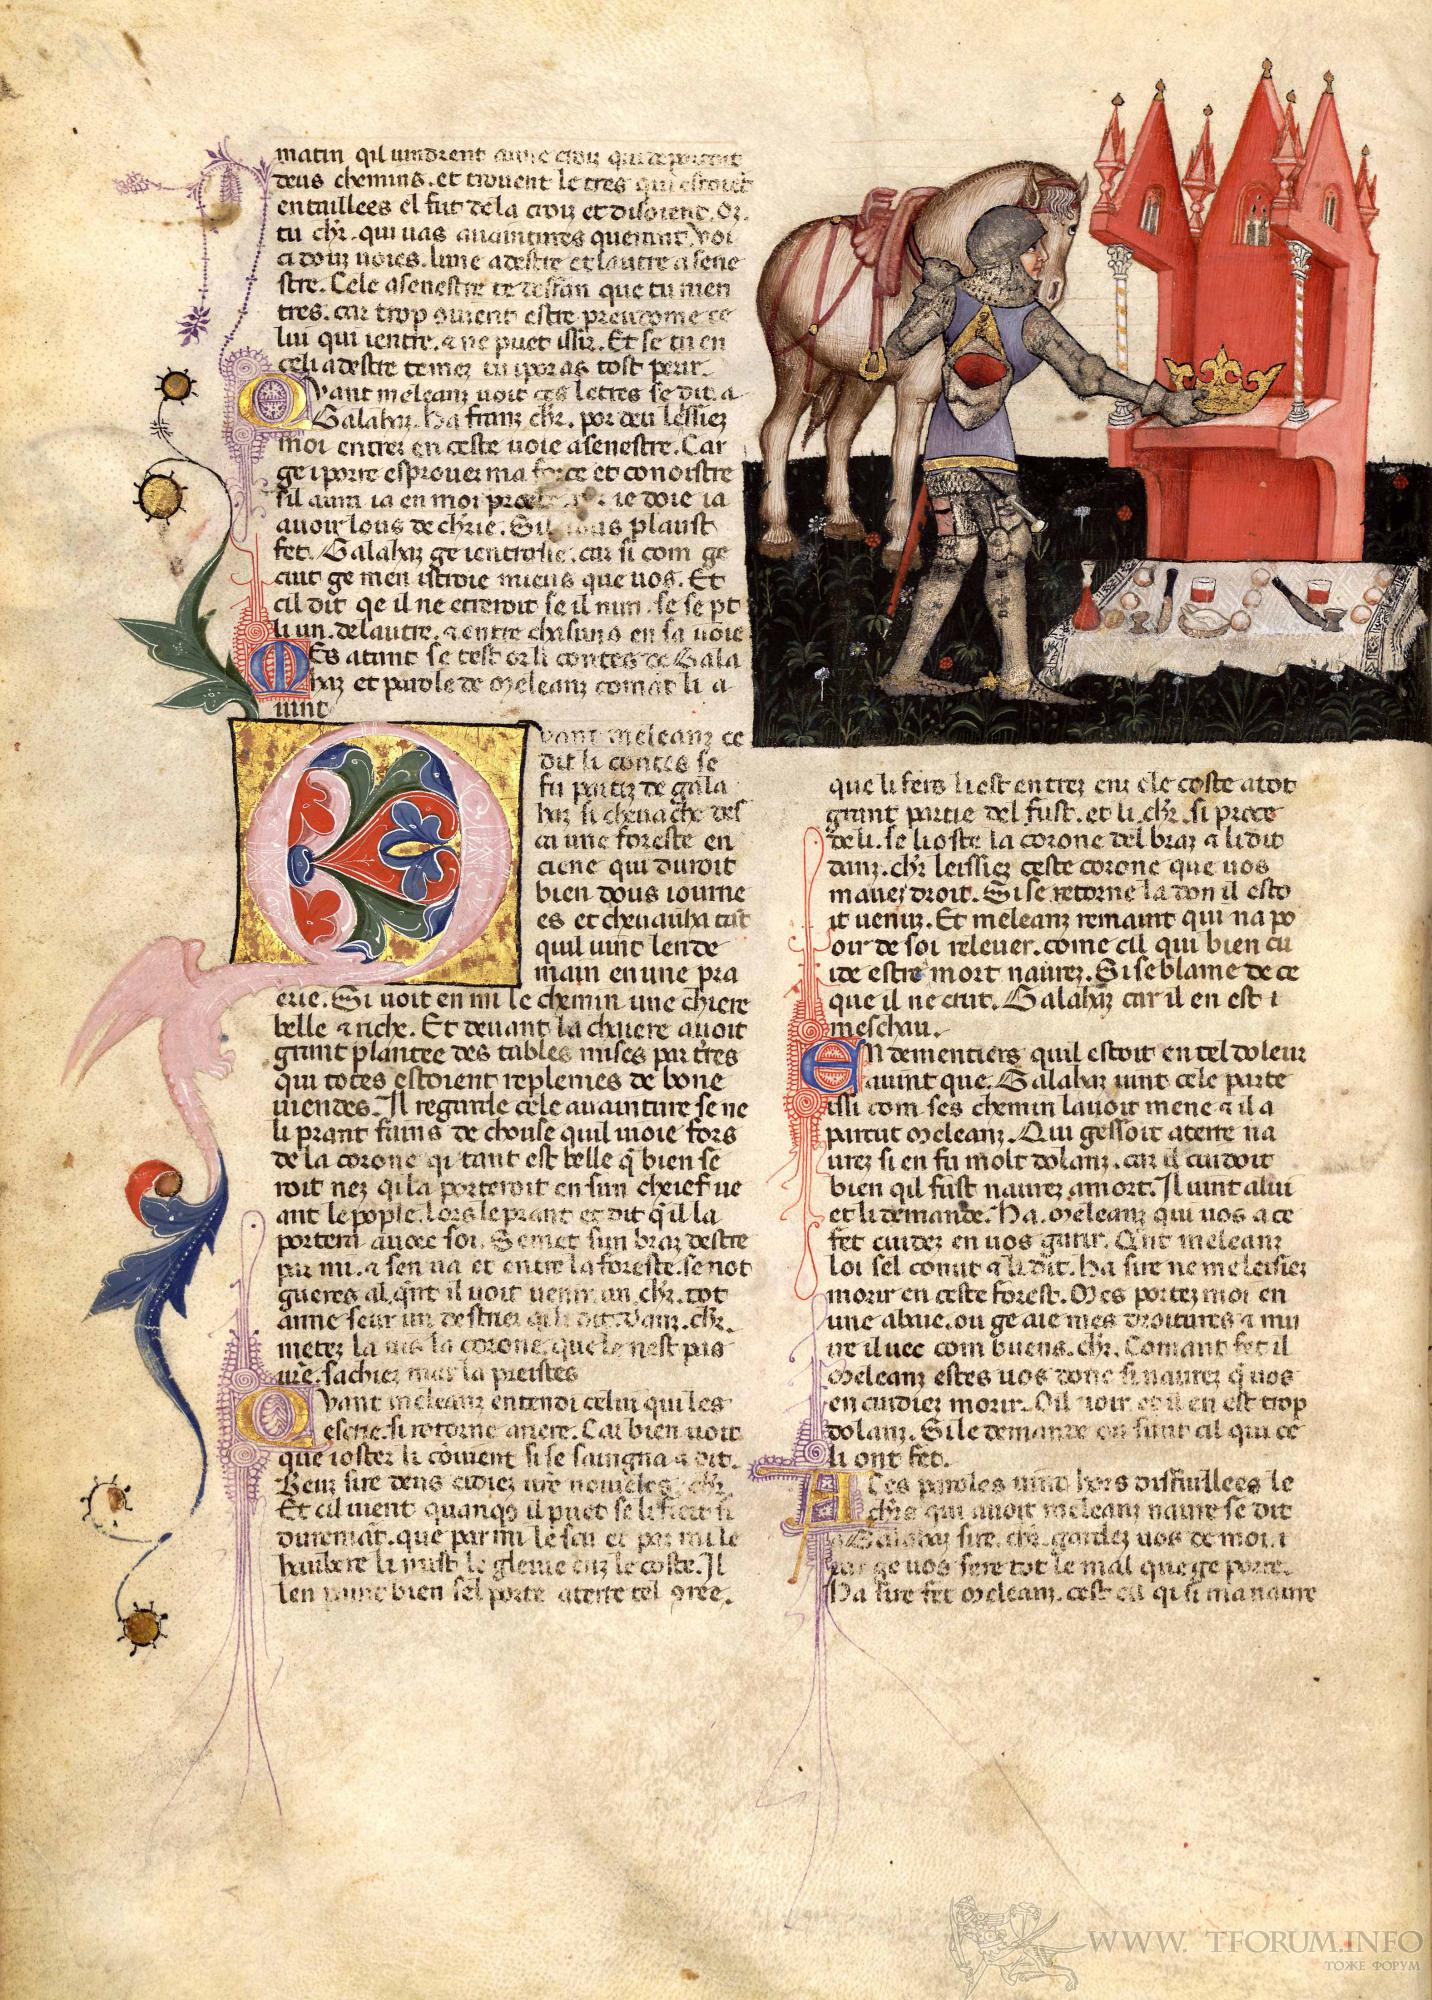 matin qil vindrent a une croiz qui departoit
deus chemins. et trouent letres qui estoiet
entaillees el fut de la croiz et disoient. Or.
tu chr. qui uas auaintures querant. voi
ci douz uoies. lune a destre et lautre a sene
stre. Cele a senestre te deffan que tu nien
tres. car trop ouient estre preudome ce
lui qui ientre. a ne puet issir. Et se tu en
celi a destre
Quant meleanz uoit ces letres se dit a
Galahaz. Ha franz chr. por deu lessiez
moi entrer en ceste uoie a senestre. Car
ge i porre esprouer ma force et conoistre
sil aura ia en moi
auoir lous de chrie. Sil uous plaust
fet. Galahaz ge ientrasse. car si com ge
cuit ge men istroie mieuz que uos. Et
cil dit qe il ne
li un. de lautre. a entra chascuns en sa uoie
Mes atant se test or li contes de Gala
haz et parole de meleanz comat li a
uint
Quant meleanz ce
dit li contes se
fu partiz de gala
haz si cheuache des
ca une foreste en
ciene qui duroit
bien dous iourne
es et cheuaucha tat
quil uint lende
main en une pra
erie. Si uoit en mi le chemin une chiere
belle a riche. Et deuant la chaiere auoit
grant plantee des tables mises par tres
qui totes estoient replenies de bone
uiendes. Il regarde cele auainture se ne
li prant fains de chouse quil uoie fors
de la corone qi tant est belle q bien se
roit nez qi la porteroit en sun chief ue
ant le pople. Lors le prant et dit q il la
portera auoec soi. Se met sun braz destre
par mi. a sen ua et entre la foreste. se not
gueres al. qnt il uoit uenir un. chr. tot
arme seur un destrier qi li dit. Danz. chr.
metez la ius la corone. que le nest pas
ure. sachiez mar la preistes
Quant meleanz entendi celui qui les
crie. si retorne ariere. Car bien uoit
que ioster li couient si se saingna a dit.
Beuz sire deus eidiez ure nouel. chr.
Et cil uient quanqs il puet se li fiert si
duremat. que par mi le scu et par mi le
hauberc li mist le gleiue enz le coste. Il
len paint bien sel porte a terre tel
que li fers li est entrez enz ele coste atot
grant partie del fust. et li. chr. si proce
de li. se li oste la corone del braz a li dit
danz. chr. leissiez ceste corone que uos
mauez droit. Si se retorne la don il esto
it uenuz. Et meleanz remaint qui na po
oir de soi releuer. come cil qui bien cu
ide estre mort naurez. Si se blame de ce
que il ne crut. Galahaz car il en est i
meschau.
En dementiers quil estoit en tel doleur
auint que. Galahaz uint cele parte
issi com ses chemin lauoit mene a il a
parcut meleanz. Qui gessoit a terre na
urez si en fu molt dolanz. car il cuidoit
bien qil fust naurez a mort. Il uint a lui
et li demande. Ha. meleanz qui uos a ce
fet cuidez en uos garir. Qnt meleanz
loi sel conut a li dit. Ha sire ne me leisiez
morir en ceste forest. Mes portez moi en
une abaie. ou ge aie mes droitures a mu
ire iluec com buens. chr. Comant fet il
meleanz estes uos donc si naurez q uos
en cuidiez morir. Oil uoir. et il en est trop
dolanz. Si le demande ou sunt cil qui ce
li ont fet.
A ces paroles uint hors disfuillees le
chrs qui auoit meleanz naure se dit
a Galahaz sire. chr. gardez uos de moi. i
car ge uos fere tot le mal que ge porre.
Ha sire fet meleanz. cest cil qi si ma naure
WWW. TFORUM.INFO
ТОЖЕ ФОРУМ